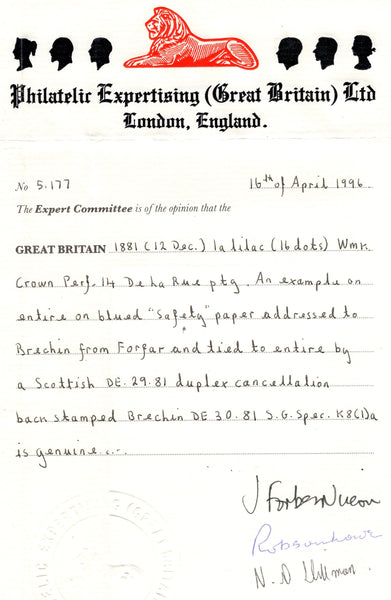 Philatelic Expertising (Great Britain) Ltd
London, England.
No 5.177 16th of April 1996.
The Expert Committee is of the opinion that the
GREAT BRITAIN 1881 (12 Dec.) 1a lilac (16 dots) Wmk
Crown Perf. 14 De La Rue ptg. An example on
entire on blued "Safety" paper addressed to
Brechin from Forfar and tied to entire by
a Scottish DE. 29. 81 duplex cancellation
back stamped Brechin DE 30. 81 S.G. Spec. K8(1)a
is genuine.
J Forbes Nixon
Robson Lowe